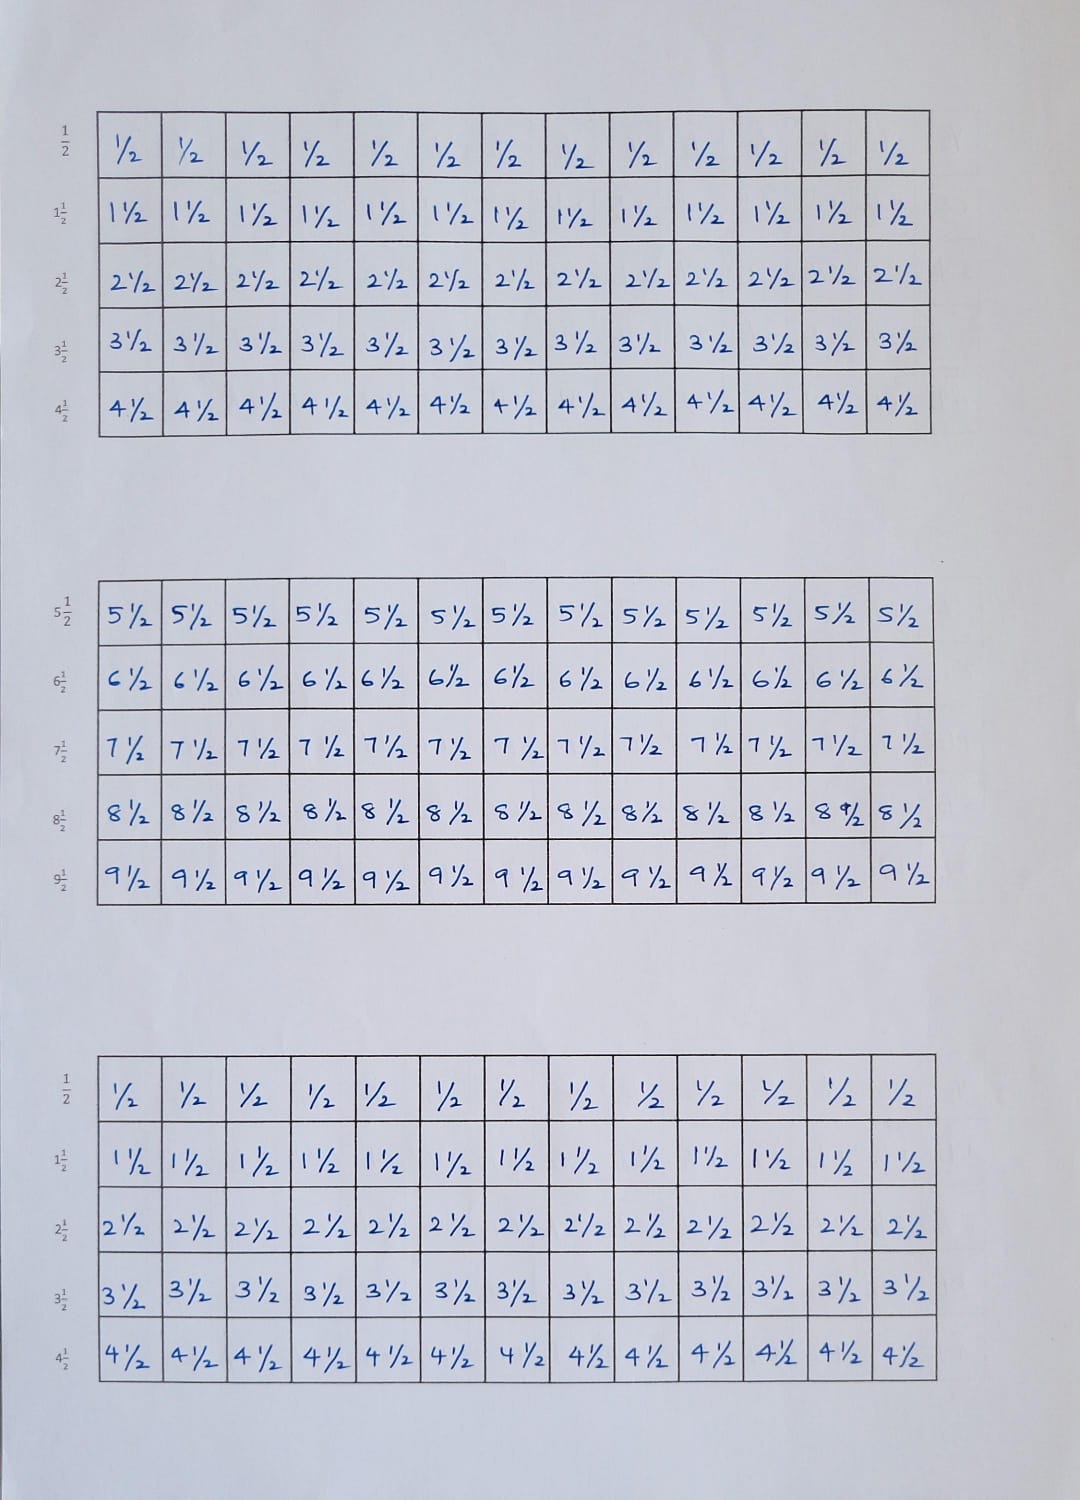 ½ ½ ½ ½ ½ ½ ½ ½ ½ ½ ½ ½ ½ ½
1½ 1½ 1½ 1½ 1½ 1½ 1½ 1½ 1½ 1½ 1½ 1½ 1½ 1½
2½ 2½ 2½ 2½ 2½ 2½ 2½ 2½ 2½ 2½ 2½ 2½ 2½ 2½
3½ 3½ 3½ 3½ 3½ 3½ 3½ 3½ 3½ 3½ 3½ 3½ 3½ 3½
4½ 4½ 4½ 4½ 4½ 4½ 4½ 4½ 4½ 4½ 4½ 4½ 4½ 4½
5½ 5½ 5½ 5½ 5½ 5½ 5½ 5½ 5½ 5½ 5½ 5½ 5½ 5½
6½ 6½ 6½ 6½ 6½ 6½ 6½ 6½ 6½ 6½ 6½ 6½ 6½ 6½
7½ 7½ 7½ 7½ 7½ 7½ 7½ 7½ 7½ 7½ 7½ 7½ 7½ 7½
8½ 8½ 8½ 8½ 8½ 8½ 8½ 8½ 8½ 8½ 8½ 8½ 8½ 8½
9½ 9½ 9½ 9½ 9½ 9½ 9½ 9½ 9½ 9½ 9½ 9½ 9½ 9½
½ ½ ½ ½ ½ ½ ½ ½ ½ ½ ½ ½ ½ ½
1½ 1½ 1½ 1½ 1½ 1½ 1½ 1½ 1½ 1½ 1½ 1½ 1½ 1½
2½ 2½ 2½ 2½ 2½ 2½ 2½ 2½ 2½ 2½ 2½ 2½ 2½ 2½
3½ 3½ 3½ 3½ 3½ 3½ 3½ 3½ 3½ 3½ 3½ 3½ 3½ 3½
4½ 4½ 4½ 4½ 4½ 4½ 4½ 4½ 4½ 4½ 4½ 4½ 4½ 4½